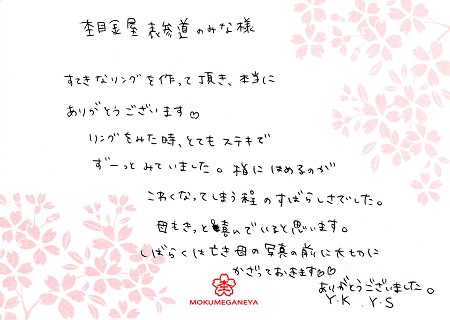 杢目金屋 表参道のみな様
すてきなリングを作って頂き、本当に
ありがとうございます♡
リングをみた時、とてもステキで
ずーっとみていました。指にはめるのが
こわくなってしまう程のすばらしさでした。
母もきっと喜んでいると思います。
しばらくは亡き母の写真の前に大切に
かざっておきます♡♡
ありがとうございました。
Y.K Y.S
杢
MOKUMEGANEYA